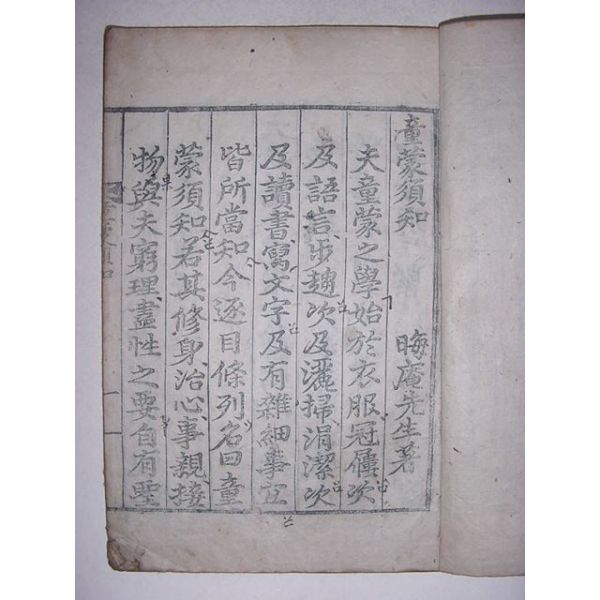 童蒙須知 晦庵先生著
夫童蒙之學始於衣服冠屨次
及語言步趨次及灑掃涓潔次
及讀書寫文字及有雜細事宜
皆所當知今逐目條列名曰童
蒙須知若其修身治心事親接
物與夫窮理盡性之要自有聖